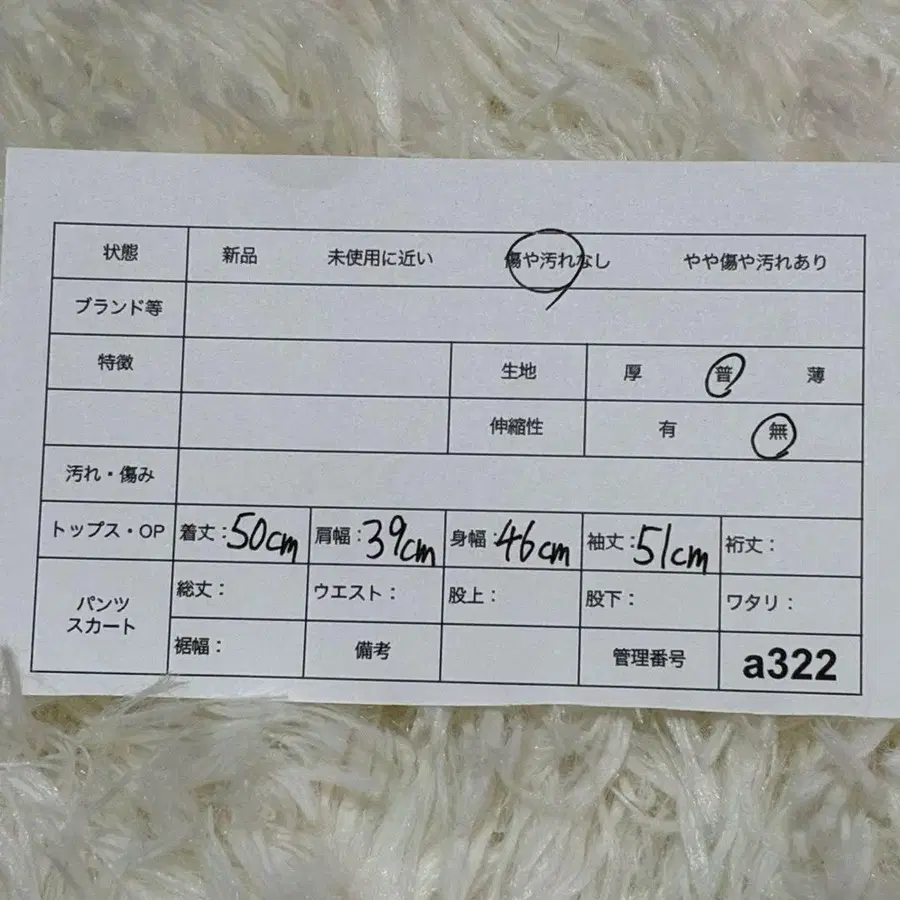 状態 新品 未使用に近い 傷や汚れなし やや傷や汚れあり
ブランド等
特徴 生地 厚 普 薄
伸縮性 有 無
汚れ・傷み
トップス・OP 着丈：50cm 肩幅：39cm 身幅：46cm 袖丈：51cm 裄丈：
パンツ
スカート
総丈： ウエスト： 股上： 股下： ワタリ：
裾幅： 備考 管理番号 a322